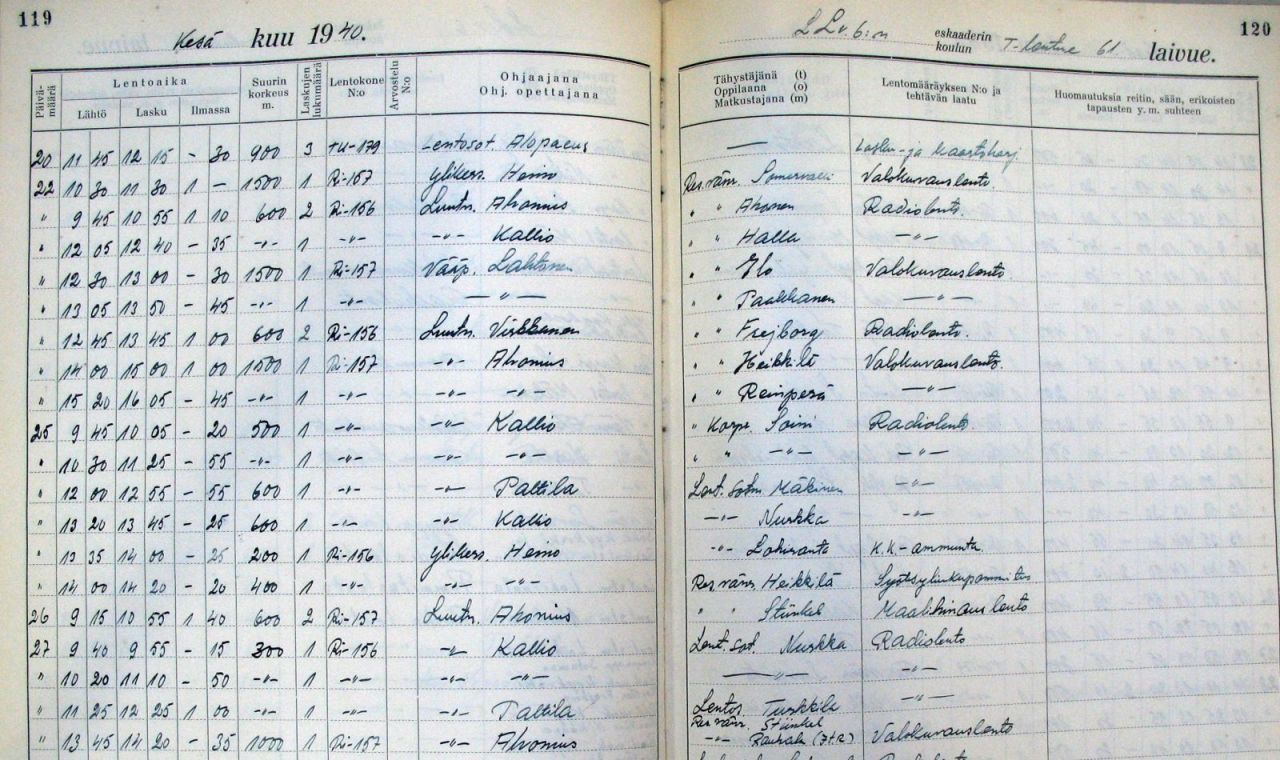 119
Kesä kuu 1940.
Päivä-määrä Lentoaika Suurin korkeus m. Laskujen lukumäärä Lentokone N:o Arvostelu N:o Ohjaajana Ohj. opettajana
Lähtö Lasku Ilmassa
20 11 45 12 15 - 30 900 3 TU-179 Lentosot. Alopaeus
22 10 30 11 30 1 - 1500 1 Ri-157 Ylikers. Heino
" 9 45 10 55 1 10 600 2 Ri-156 Luutn. Ahonius
" 12 05 12 40 - 35 -"- 1 -"- -"- Kallio
" 12 30 13 00 - 30 1500 1 Ri-157 Vääp. Lahtonen
" 13 05 13 50 - 45 -"- 1 -"- -"-
" 12 45 13 45 1 00 600 2 Ri-156 Luutn. Virkkunen
" 14 00 15 00 1 00 1500 1 Ri-157 -"- Ahonius
" 15 20 16 05 - 45 -"- 1 -"- -"- -"-
25 9 45 10 05 - 20 500 1 -"- -"- Kallio
" 10 30 11 25 - 55 -"- 1 -"- -"- -"-
" 12 00 12 55 - 55 600 1 -"- -"- Paltila
" 13 20 13 45 - 25 600 1 -"- -"- Kallio
" 13 35 14 00 - 25 200 1 Ri-156 Ylikers. Heino
" 14 00 14 20 - 20 400 1 -"- -"- -"-
26 9 15 10 55 1 40 600 2 Ri-157 Luutn. Ahonius
27 9 40 9 55 - 15 300 1 Ri-156 -"- Kallio
" 10 20 11 10 - 50 -"- 1 -"- -"- -"-
" 11 25 12 25 1 00 -"- 1 -"- -"- Paltila
" 13 45 14 20 - 35 1000 1 Ri-157 -"- Ahonius
120
L Lv. 6:n eskaaderin koulun T-lentue 61 laivue.
Tähystäjänä (t) Oppilaana (o) Matkustajana (m) Lentomääräyksen N:o ja tehtävän laatu Huomautuksia reitin, sään, erikoisten tapausten y. m. suhteen
— Lasku- ja Maastoharj.
Res.vänr. Somersalli Valokuvauslento.
" " Ahonen Radiolento.
" " Halla -"-
" " Ylo Valokuvauslento
" " Paakkanen -"-
" " Frejborg Radiolento.
" " Heikkilä Valokuvauslento.
" " Reinperä -"-
" Korpr. Soini Radiolento
" " -"- -"-
Lent.sotm. Mäkinen -"-
-"- Nurkka -"-
-"- Lohiranta K.K-ammunta.
Res.vänr. Heikkilä
" " Stünkel Maalihinauslento
Lent.sot. Nurkka Radiolento
-"- -"-
Lentos. Turkkila -"-
Res vänr. Stünkel
-"- Valokuvauslento